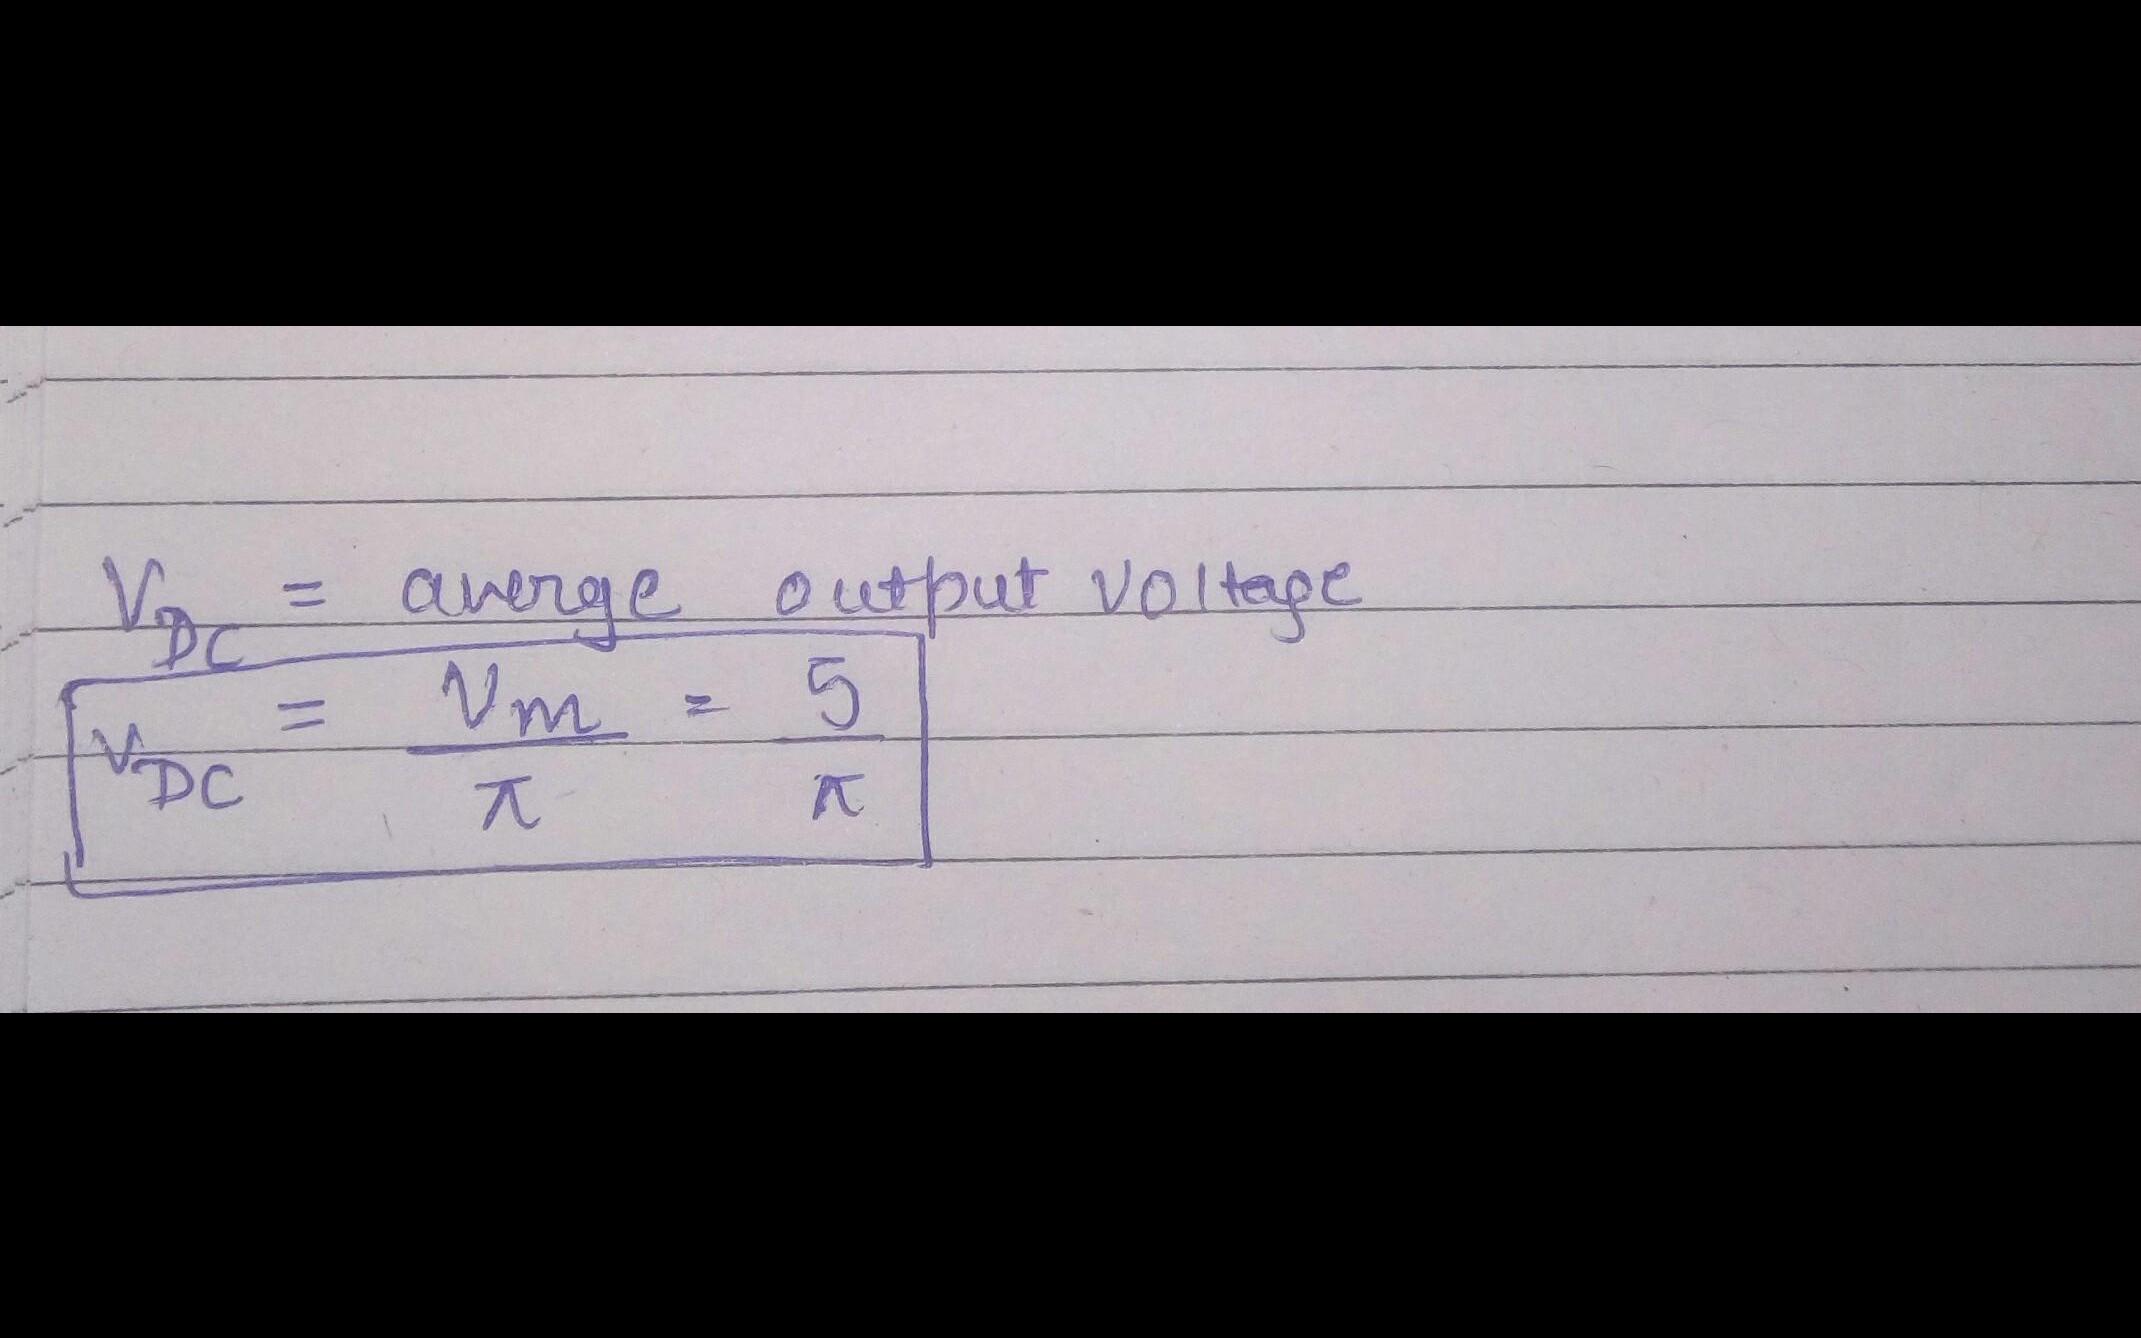 V_DC = averge output voltage
V_DC = Vm/π = 5/π